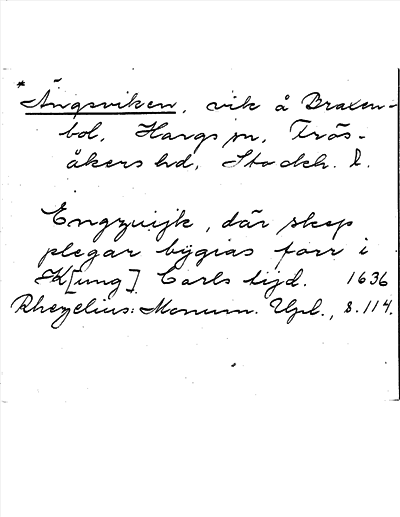 * Ängsviken, vik å Braxen-
bol, Hargs sn, Frös-
åkers hd, Stockh. l.
Engzuijk, där skep
plegar bÿgias förr i
K[ung] Carls tijd. 1636
Rhezelius: Monum. Upl., s. 114.